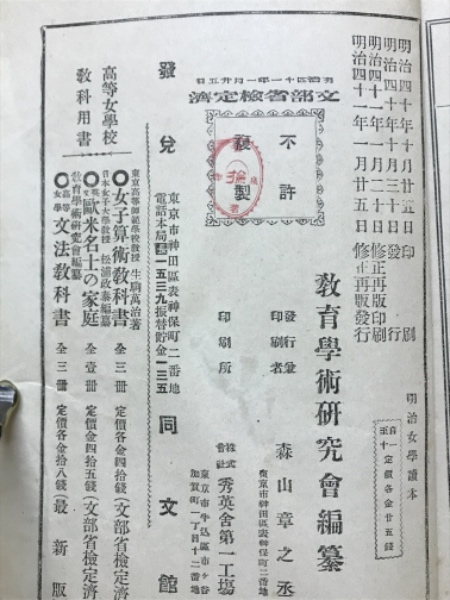 明治四十年十月廿五日印刷
明治四十年十月三十日發行
明治四十一年一月二十日修正再版印刷
明治四十一年一月廿五日修正再版發行
明治女學讀本
自一至十定價各金廿五錢
教育學術研究會編纂
明治四十一年一月廿五日
文部省檢定濟
不許
複製
發行兼印刷者
森山章之丞
東京市神田區表神保町二番地
印刷所
株式會社秀英舍第一工場
東京市牛込區市ヶ谷加賀町一丁目十二番地
發兌
東京市神田區表神保町二番地
電話本局一五三九振替貯金一三五
同文館
高等女學校
教科用書
東京高等師範學校教授生駒萬治著
◎女子算術教科書全三冊定價各金四拾錢(文部省檢定濟
日本女子大學教授松浦政泰編纂
◎歐米名士の家庭全壹冊定價金四拾五錢(文部省檢定濟
教育學術研究會編纂
◎高等女學文法教科書全三冊定價各金拾八錢(最新版